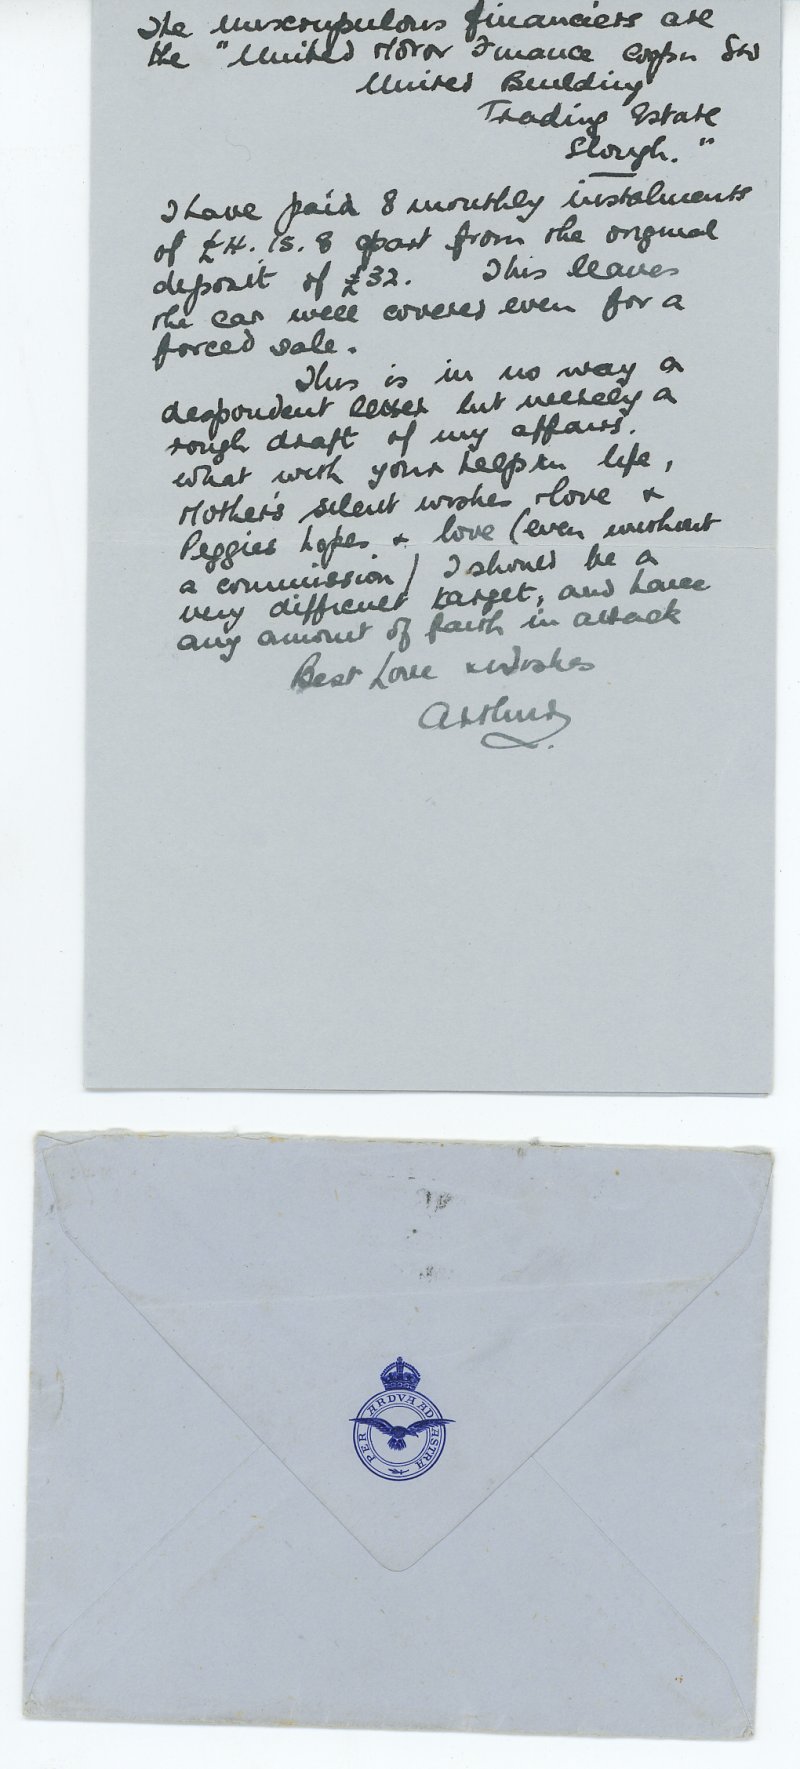 The unscrupulous financiers are
the "United Motor Finance Corpn Ltd
United Building
Trading Estate
Slough."
I have paid 8 monthly instalments
of £4. 15. 8 apart from the original
deposit of £32. This leaves
the car well covered even for a
forced sale.
This is in no way a
despondent letter but merely a
rough draft of my affairs.
What with your help in life,
Mother's silent wishes & love &
Peggies hopes & love (even without
a commission) I should be a
very difficult target, and have
any amount of faith in attack
Best Love & Wishes
Arthur
PER ARDVA AD ASTRA